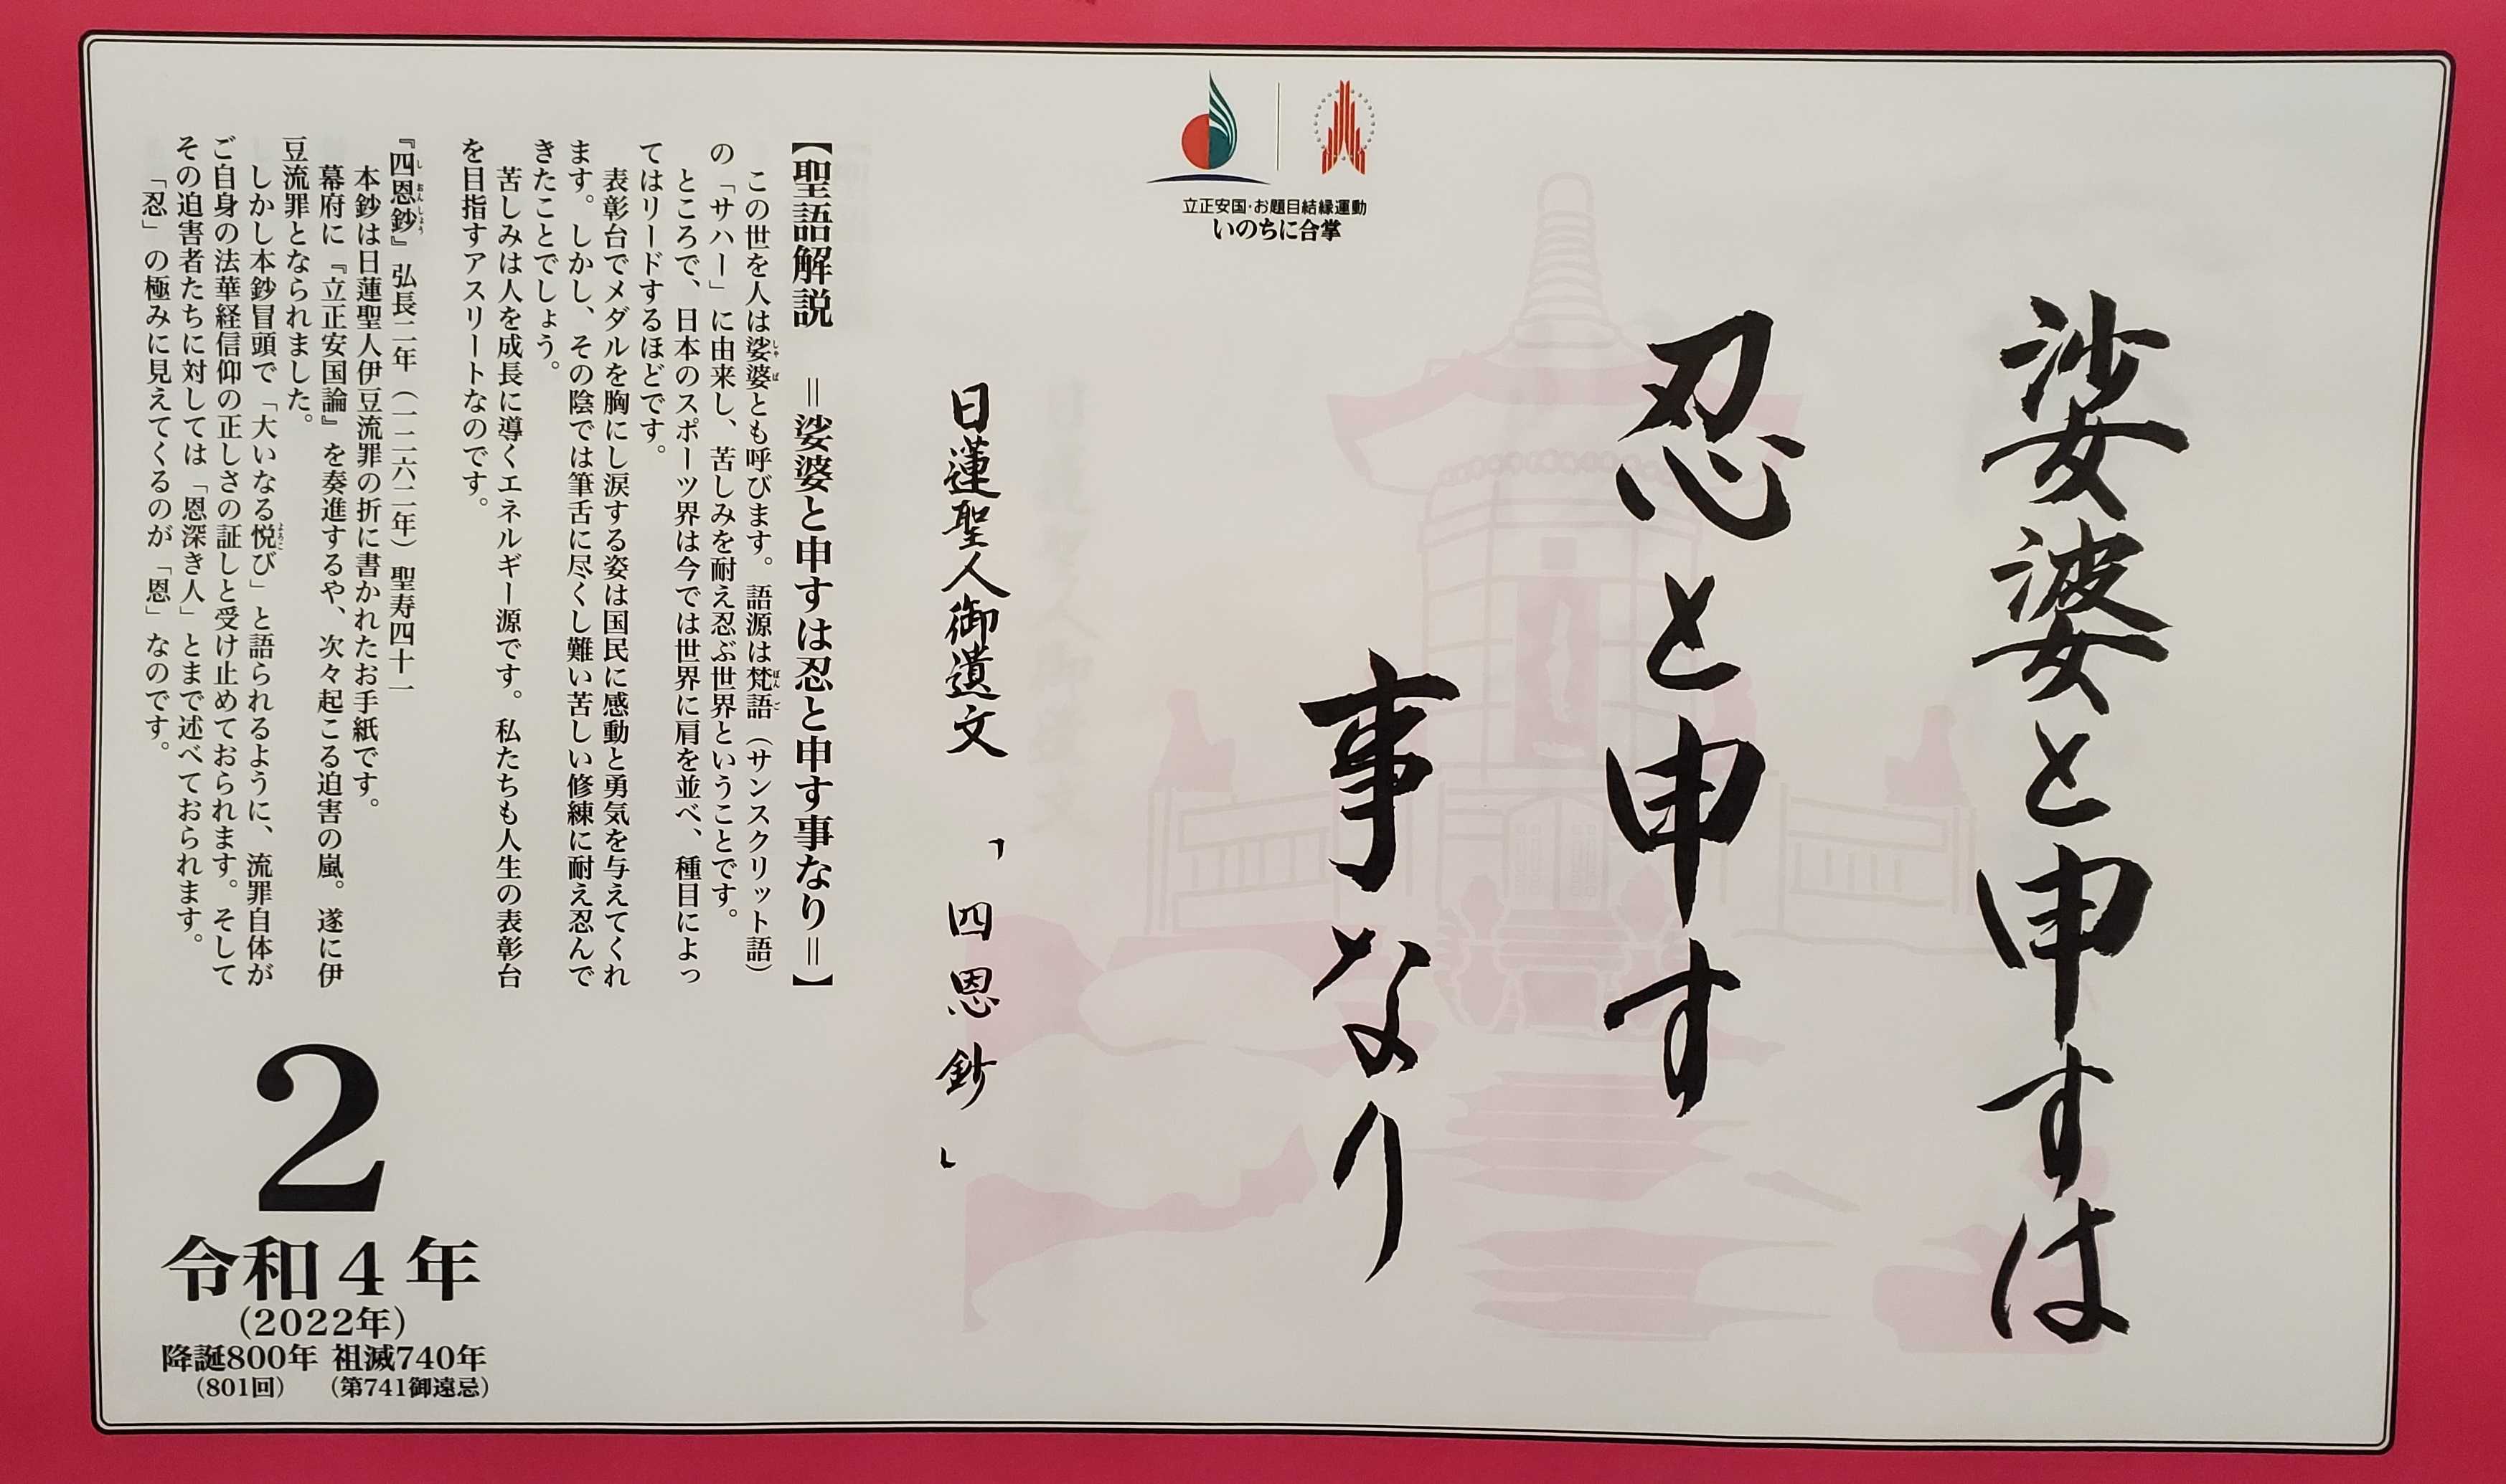 娑婆と申すは
忍と申す
事なり
立正安国・お題目結縁運動
いのちに合掌
日蓮聖人御遺文「四恩鈔」
【聖語解説 =娑婆と申すは忍と申す事なり=】
この世を人は娑婆とも呼びます。語源は梵語(サンスクリット語)
の「サハー」に由来し、苦しみを耐え忍ぶ世界ということです。
ところで、日本のスポーツ界は今では世界に肩を並べ、種目によっ
てはリードするほどです。
表彰台でメダルを胸にし涙する姿は国民に感動と勇気を与えてくれ
ます。しかし、その陰では筆舌に尽くし難い苦しい修練に耐え忍んで
きたことでしょう。
苦しみは人を成長に導くエネルギー源です。私たちも人生の表彰台
を目指すアスリートなのです。
『四恩鈔』弘長二年(一二六二年)聖寿四十一
本鈔は日蓮聖人伊豆流罪の折に書かれたお手紙です。
幕府に『立正安国論』を奏進するや、次々起こる迫害の嵐。遂に伊
豆流罪となられました。
しかし本鈔冒頭で「大いなる悦び」と語られるように、流罪自体が
ご自身の法華経信仰の正しさの証しと受け止めておられます。そして
その迫害者たちに対しては「恩深き人」とまで述べておられます。
「忍」の極みに見えてくるのが「恩」なのです。
2
令和4年
(2022年)
降誕800年 祖滅740年
(801回) (第741御遠忌)